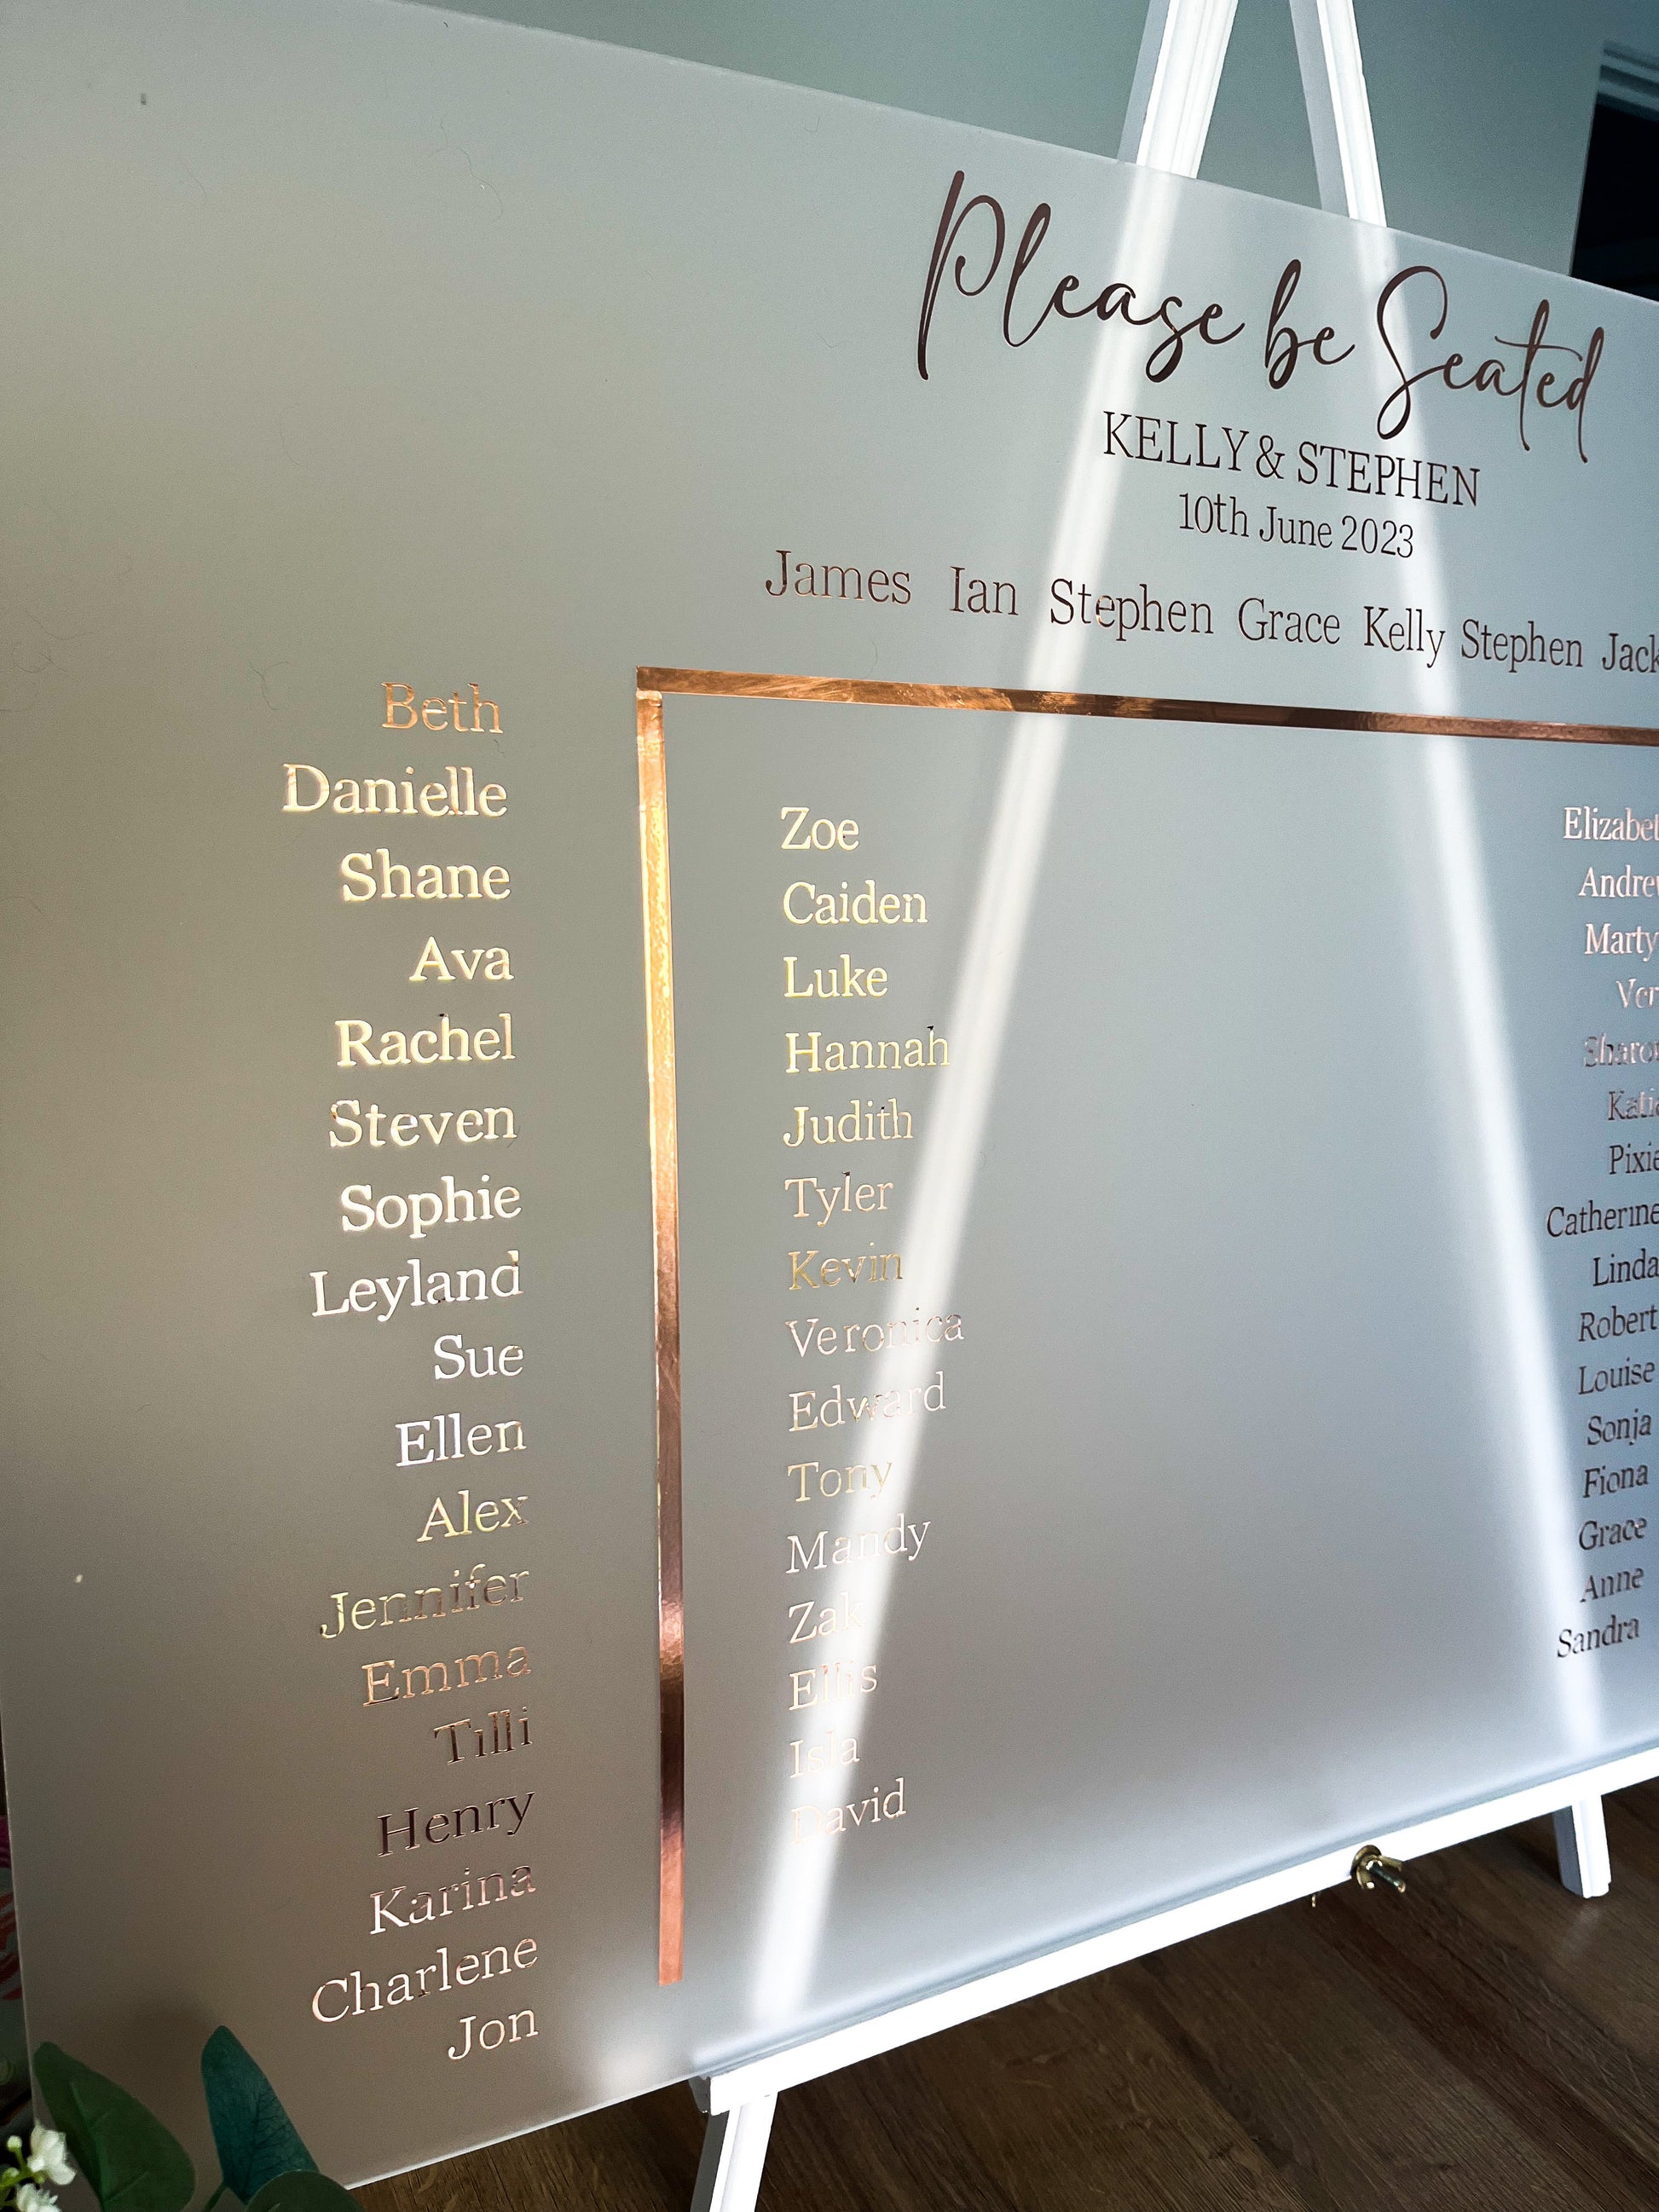 Please be Seated
KELLY & STEPHEN
10th June 2023
James Ian Stephen Grace Kelly Stephen Jack
Beth
Danielle
Shane
Ava
Rachel
Steven
Sophie
Leyland
Sue
Ellen
Alex
Jennifer
Emma
Tilli
Henry
Karina
Charlene
Jon
Zoe
Caiden
Luke
Hannah
Judith
Tyler
Kevin
Veronica
Edward
Tony
Mandy
Zak
Ellis
Isla
David
Catherine
Linda
Robert
Louise
Sonja
Fiona
Grace
Anne
Sandra